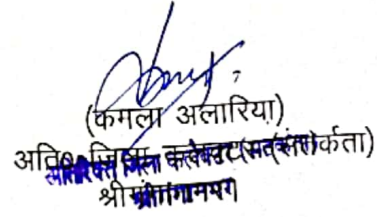 (कमला अलारिया)
अति० जिला कलेक्टर (सतर्कता)
श्रीगंगानगर